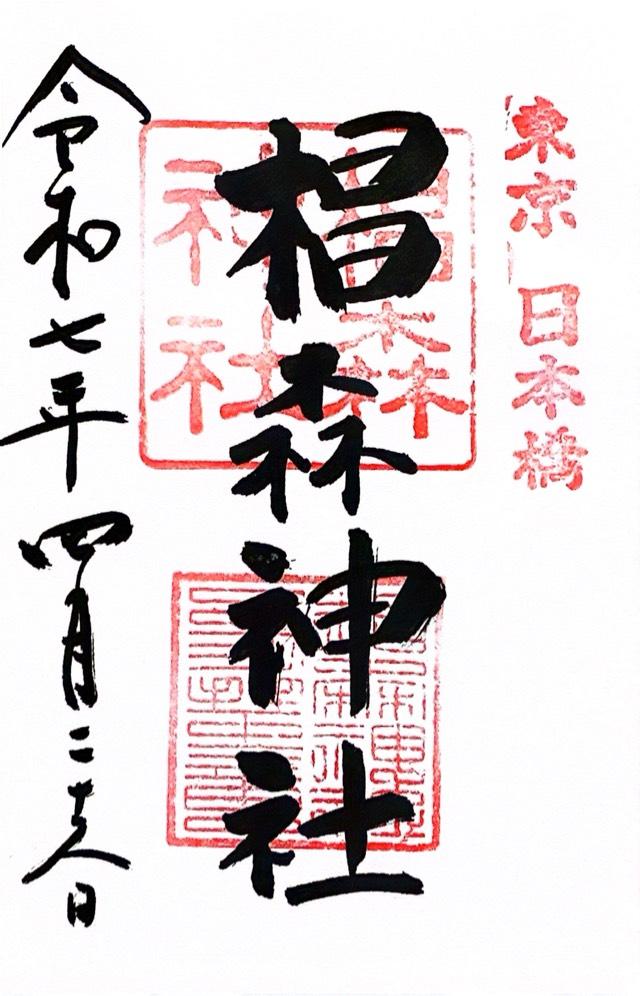 東京 日本橋
椙森神社
椙森
神社
令和七年四月二十八日